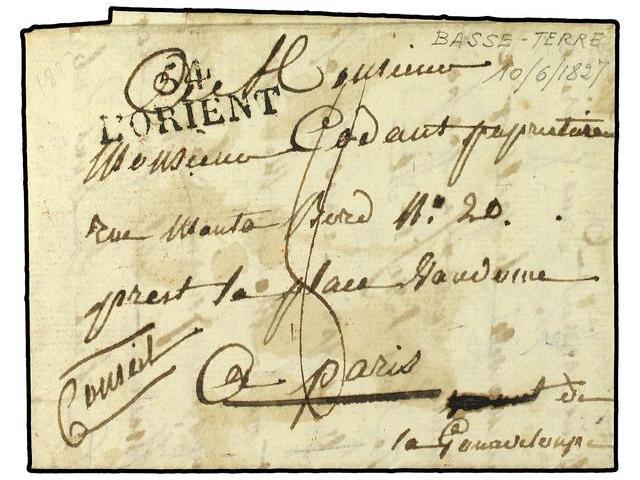 BASSE-TERRE
10/6/1827
54
L'ORIENT
A Monsieur
Monsieur Codant propriétaire
rue Monta Bord N° 20.
prest la place Vandome
A Paris
Conseil
de
la Gouadeloupe
8